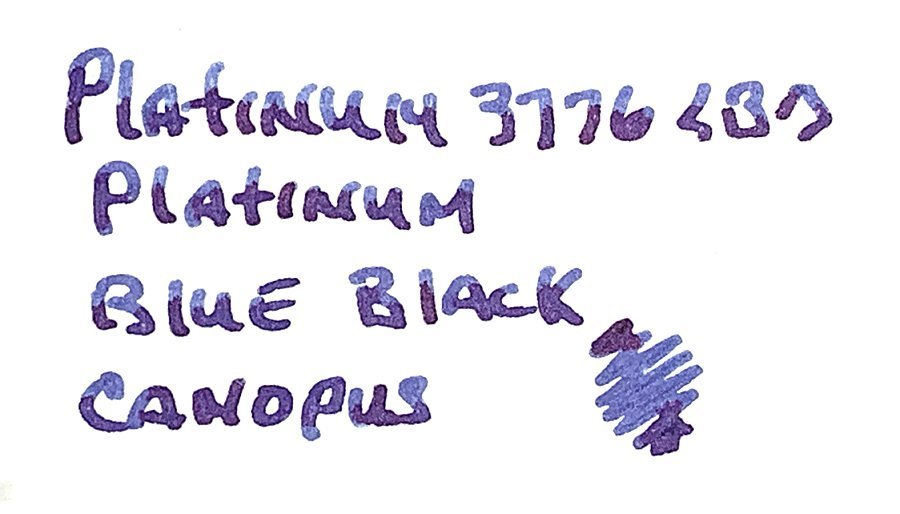 Platinum 3776 <B>
Platinum
Blue Black
Canopus